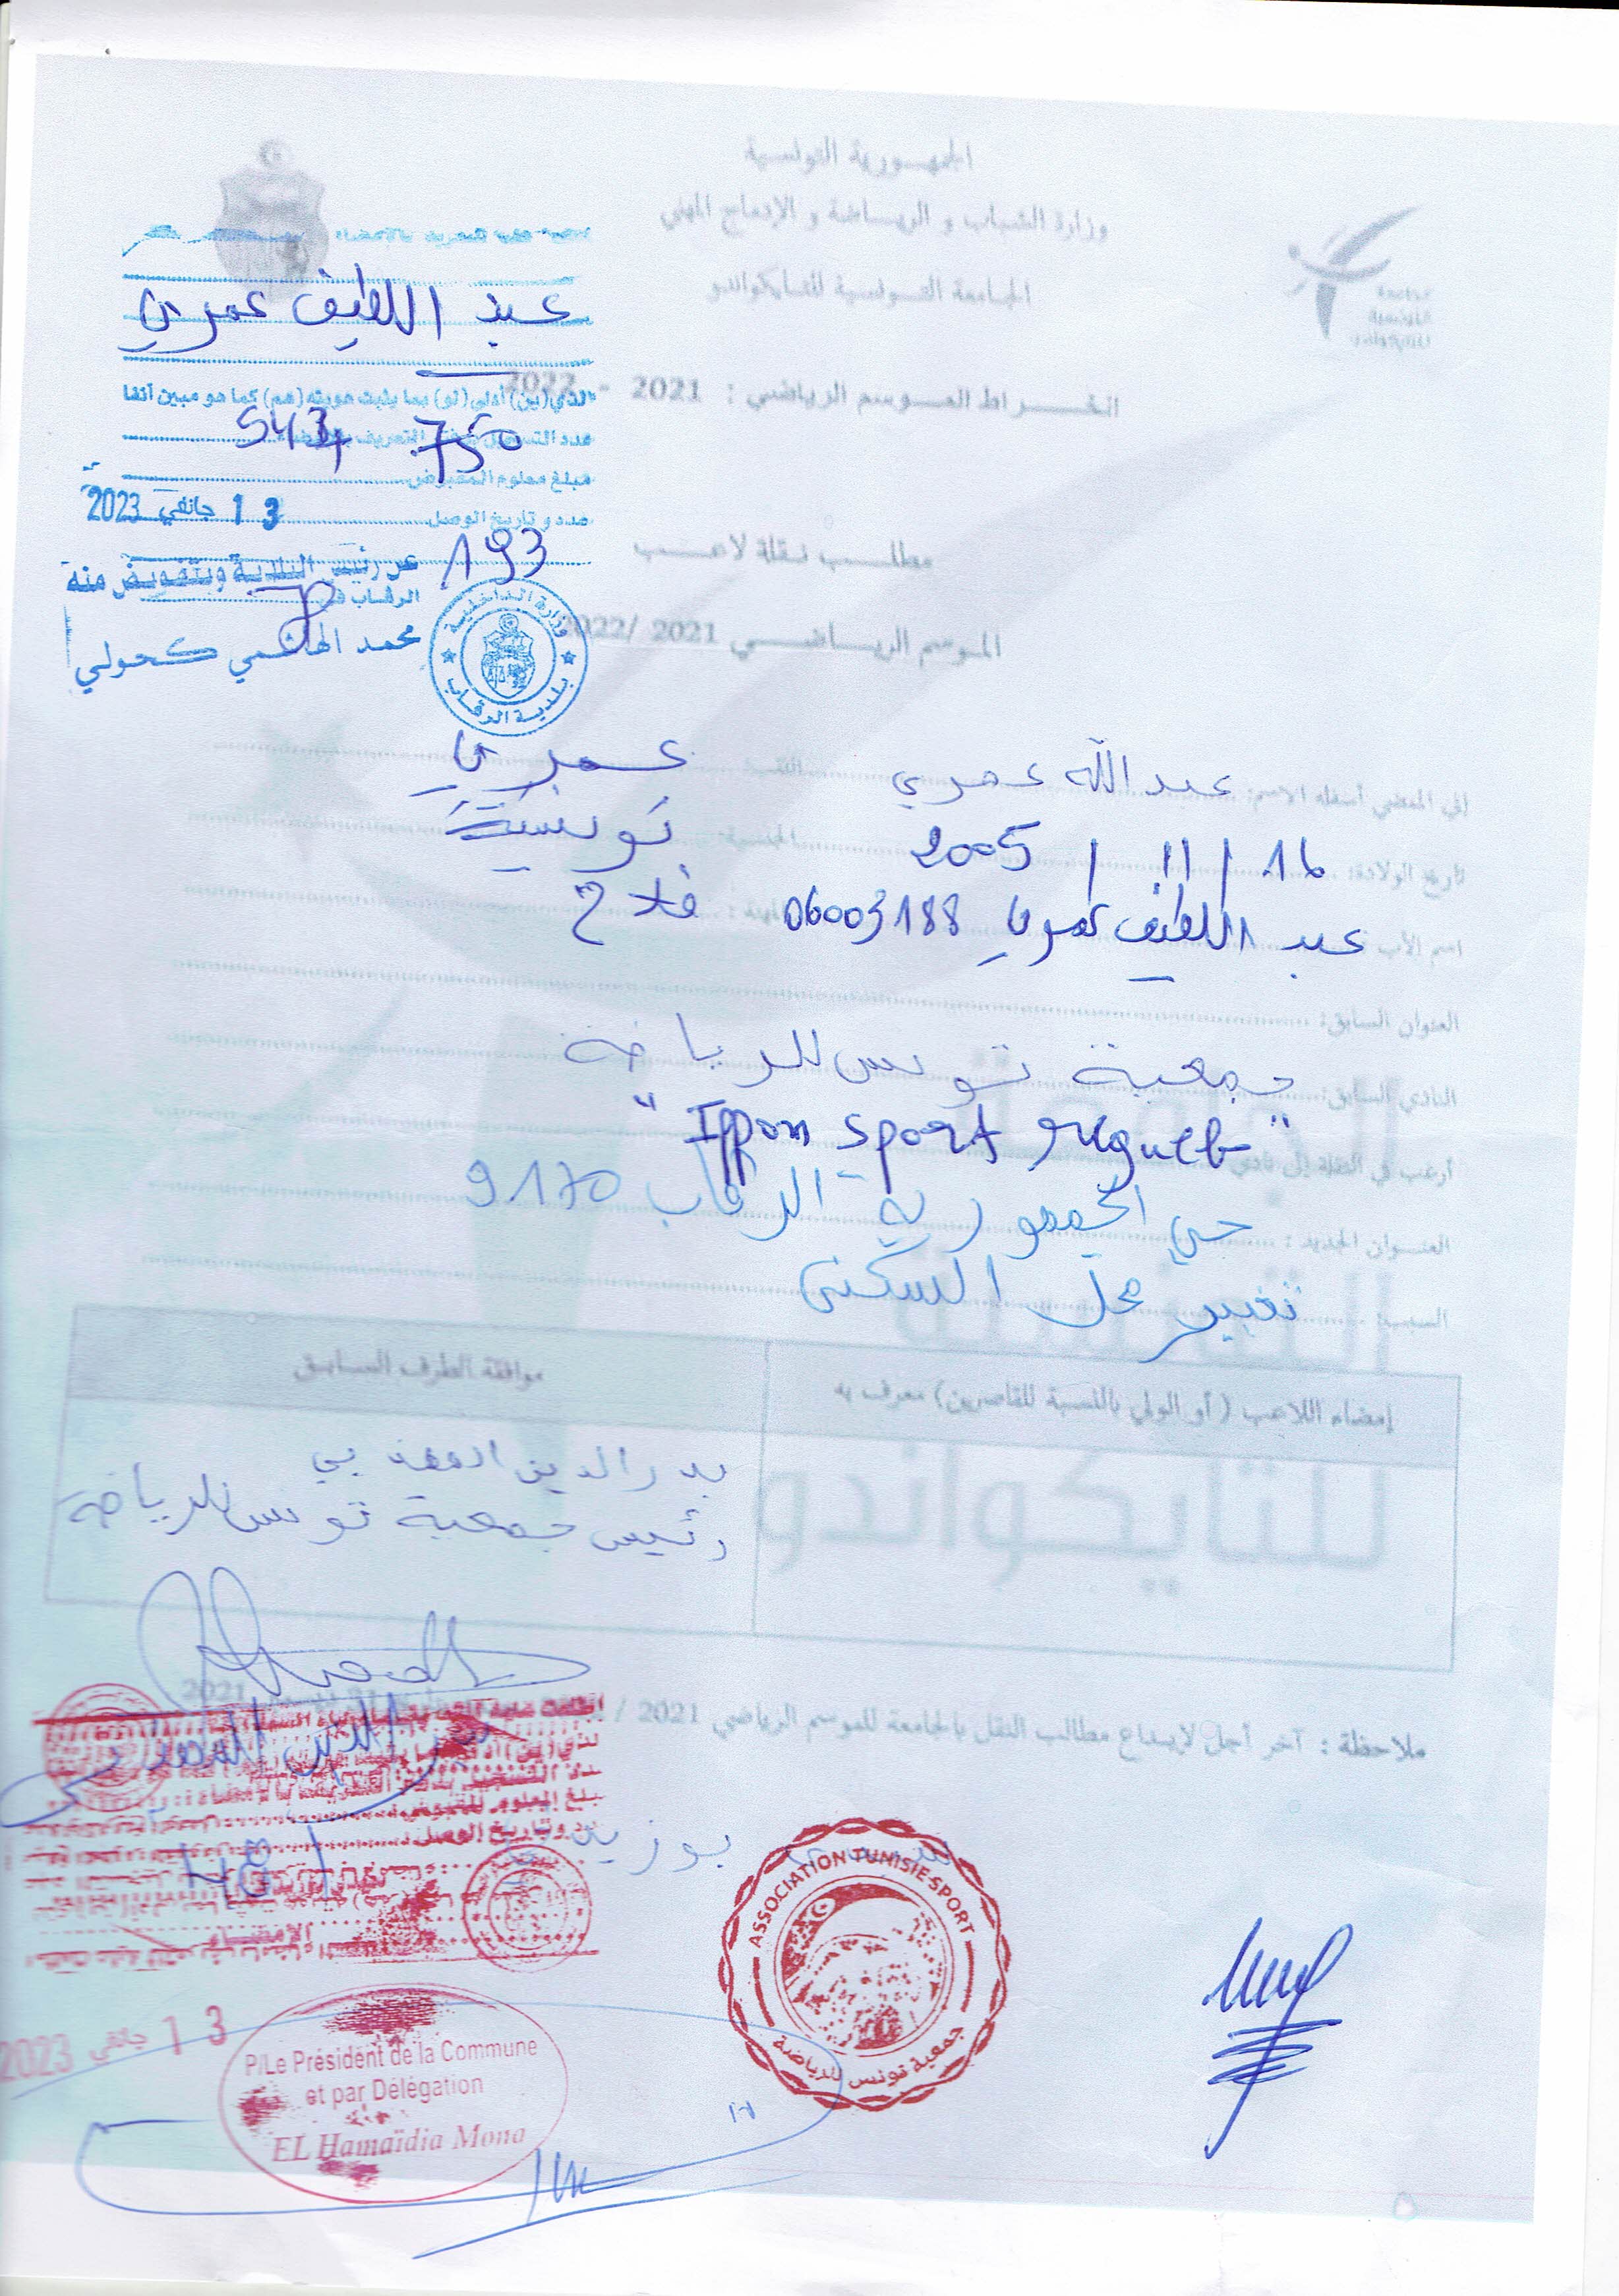 الجمهورية التونسية
وزارة الشباب و الرياضة و الإدماج المهني
الجامعة التونسية للتايكواندو
الجامعة
التونسية
للتايكواندو
انخراط الموسم الرياضي : 2021 - 2022
مطلب نقلة لاعب
الموسم الرياضي 2021 /2022
عبد اللطيف عمري
الذي(ين) أدلى(لو) بما يثبت هويته(هم) كما هو مبين آنفا
عدد التسجيل بدفتر التعريف
543 750
مبلغ معلوم المقبوض
عدد و تاريخ الوصل
1 3 جانفي 2023
193
عن رئيس البلدية وبتفويض منه
الرقاب في
محمد الهاشمي كحولي
وزارة الداخلية
بلدية الرقاب
إني الممضي أسفله الاسم: عبد الله عمري اللقب عمري
تاريخ الولادة: 16 / 11 / 2005 الجنسية: تونسية
اسم الأب عبد اللطيف عمري 06003188 المهنة : فلاح
العنوان السابق:
النادي السابق: جمعية تونس للرياضة
أرغب في النقلة إلى نادي "Ippon sport regueb"
العنوان الجديد : حي الجمهورية الرقاب 9170
السبب: تغيير محل السكنى
إمضاء اللاعب ( أو الولي بالنسبة للقاصرين) معرف به
موافقة الطرف السابق
بدر الدين
رئيس جمعية تونس للرياضة
الجامعة
التونسية
للتايكواندو
ملاحظة : آخر أجل لإيداع مطالب النقل بالجامعة للموسم الرياضي 2021 /
2021
بدر الدين
مبلغ المعلوم المقبوض
وتاريخ الوصل
الإمضاء
بوزيد
ASSOCIATION TUNISIE SPORT
جمعية تونس للرياضة
1 3 جانفي 2023
P/Le Président de la Commune
et par Délégation
EL Hamaïdia Mona